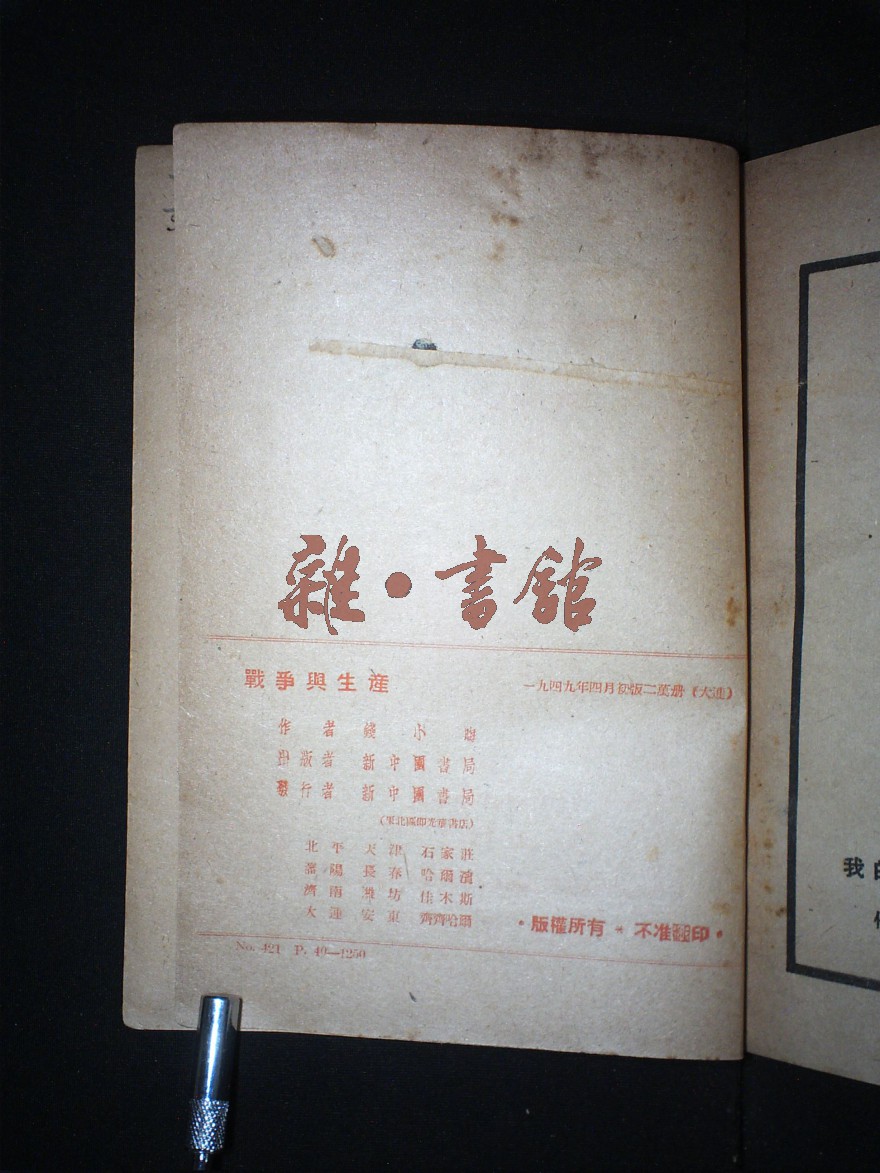 雜・書館
戰爭與生產
一九四九年四月初版二萬册(大連)
作者 錢小
出版者 新中國書局
發行者 新中國書局
(東北區卽光華書店)
北平 天津 石家莊
瀋陽 長春 哈爾濱
濟南 濰坊 佳木斯
大連 安東 齊齊哈爾
・版權所有・不准翻印・
No. 421 P. 40—1250
我